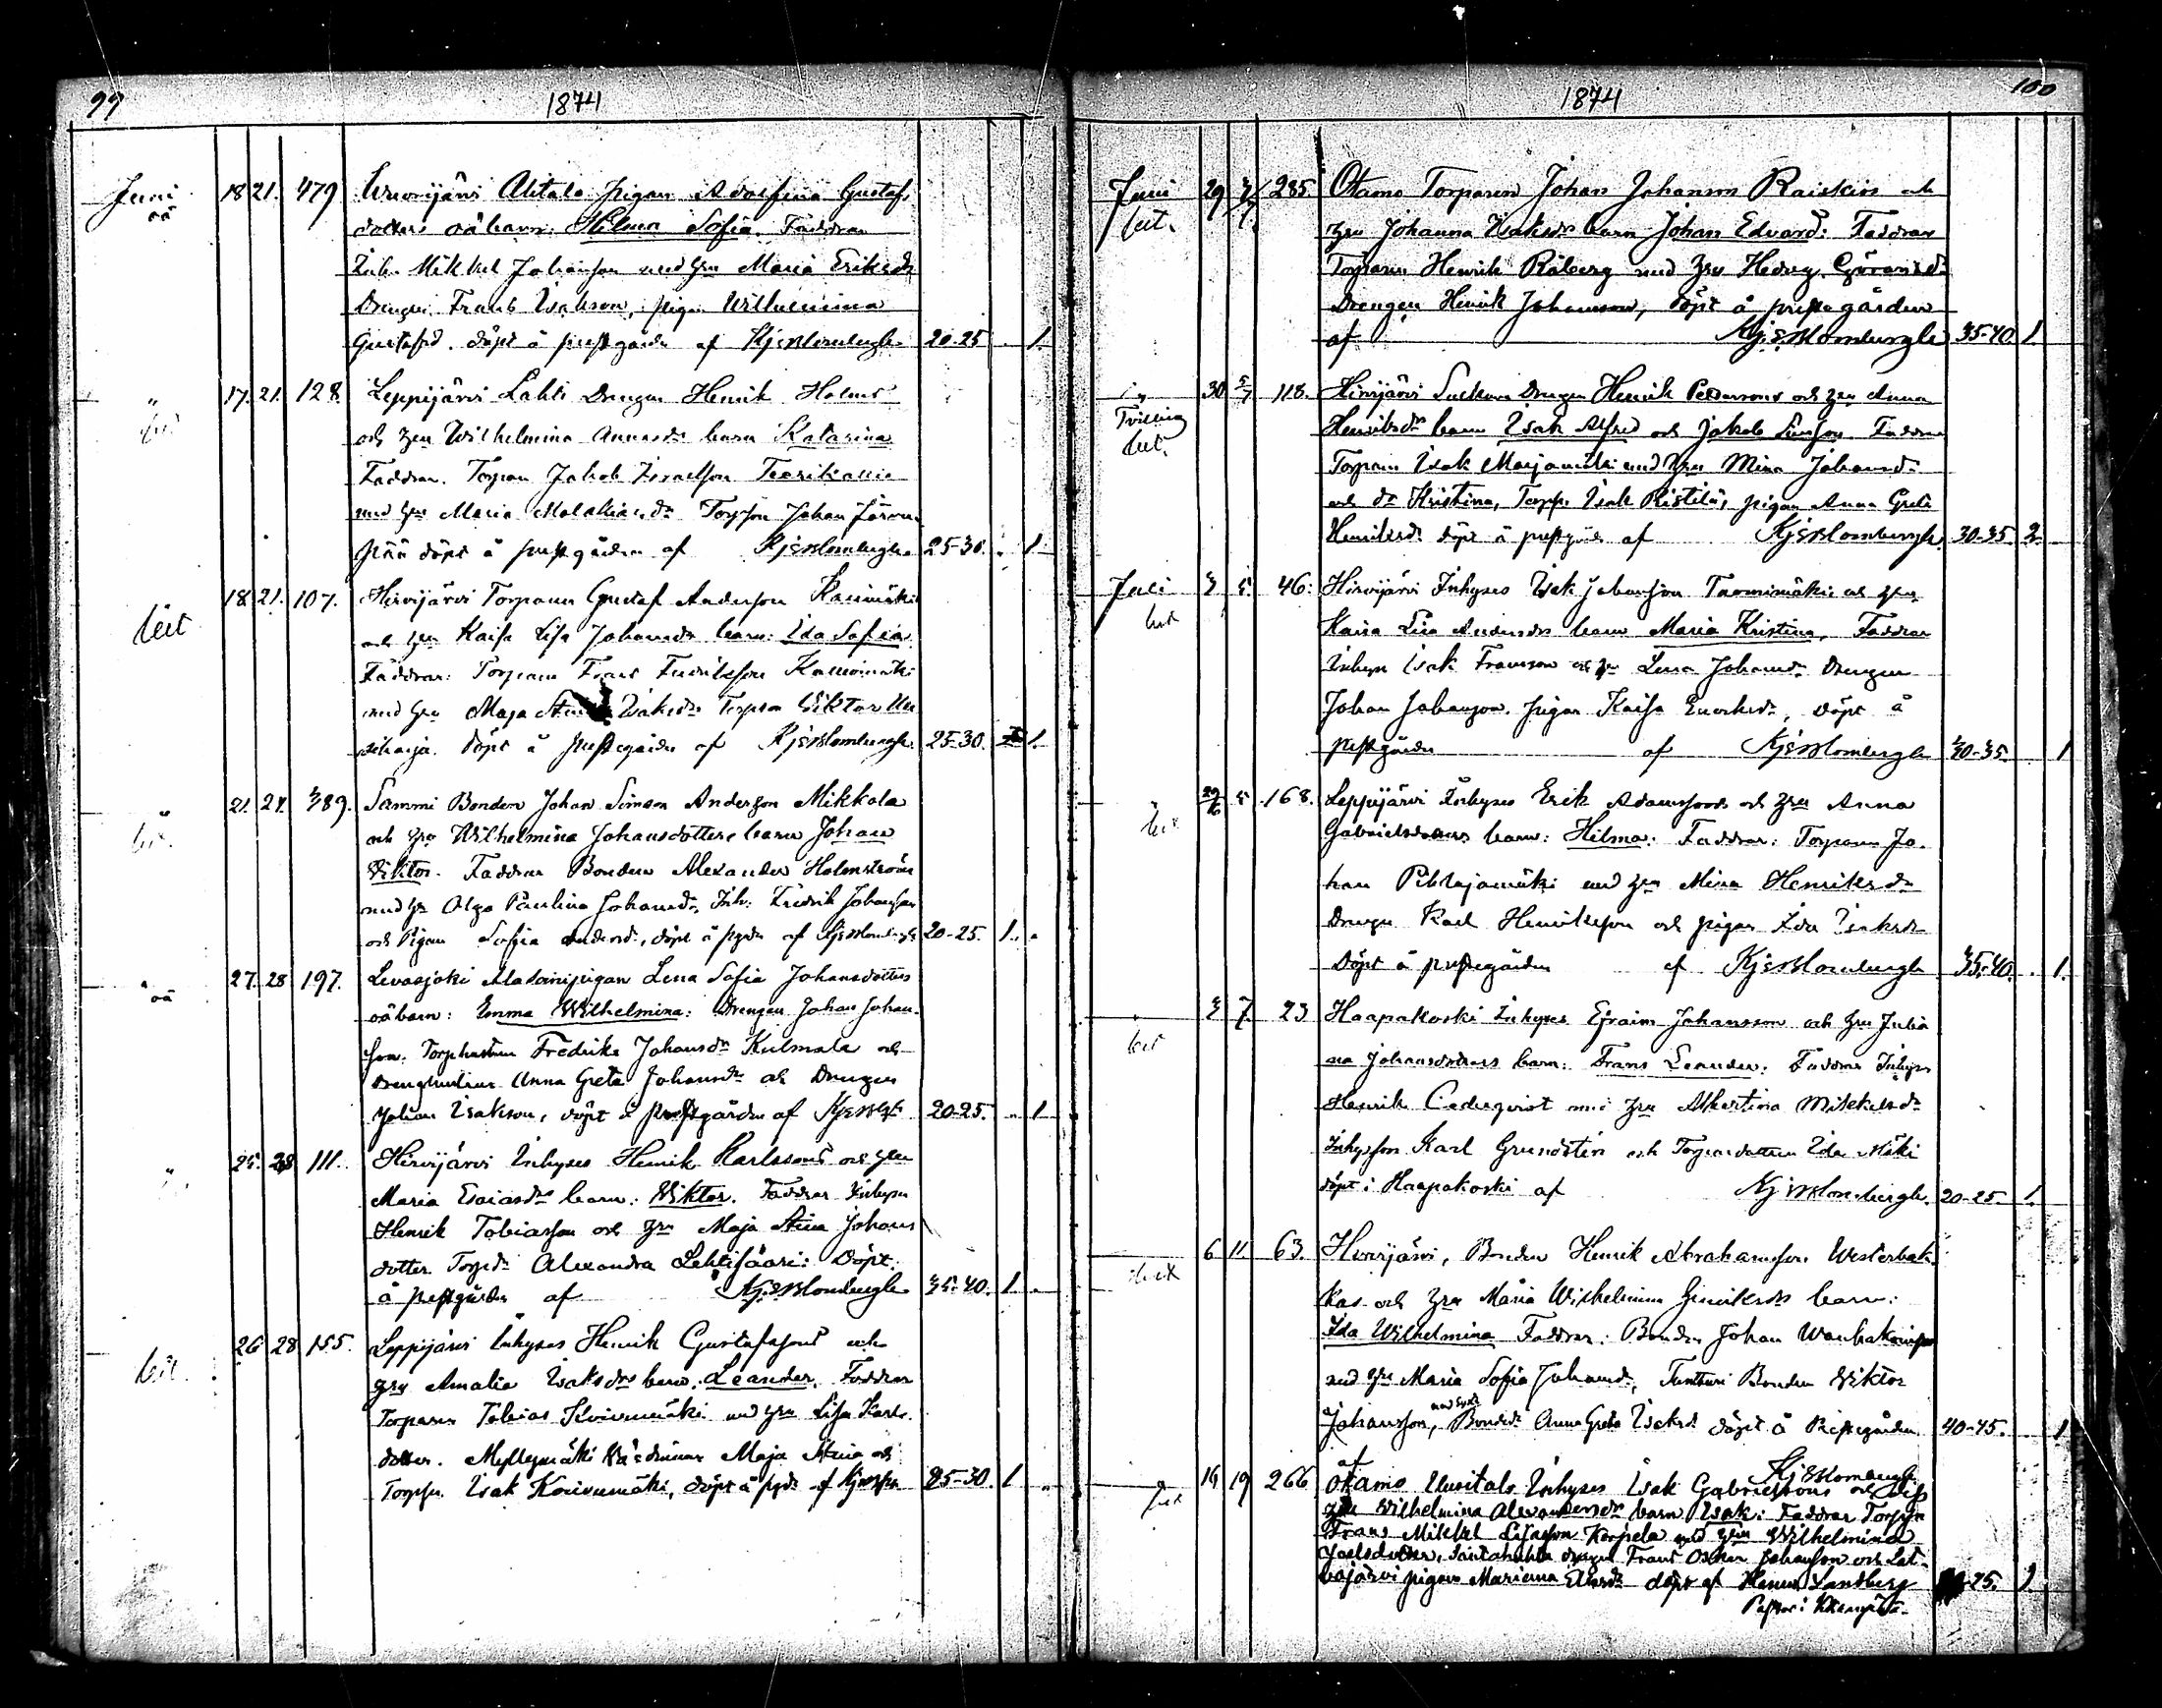 99
1874
Juni 18 21. 479 Hirvijärvi Alitalo pigan Adolfina Gustafs
oä dotters oäbarn: Hilma Sofia. Faddrar
Inh. Mikkel Johansson med hu Maria Eriksdr
Drengen Frans Isakson, pigan Wilhelmina
Gustafsd. döpt å prestgården af KjEBlombergh 20-25 1.
" 17. 21. 128. Leppijärvi Lahti Drengen Henrik Holms
och hu Wilhelmina Annasdr barn Katarina
Faddrar. Torparn Jakob Israelsson
med hu Maria Malakiasdr Torpson Johan Järven
pää döpt å prestgården af KjEBlombergh 25-30. 1
18 21. 107. Hirvijärvi Torparen Gustaf Andersson
leg:t och hu Kaisa Lisa Johansdr barn: Ida Sofia.
Faddrar: Torparn Frans Fredriksson
med hu Maja Isaksdr Torpson Viktor
döpt å prestegården af KjEBlombergh 25-30. 1.
" 21. 24. 389. Sammi Bonden Johan Simon Anderson Mikkola
och hu Wilhelmina Johansdotters barn Johan
Viktor. Faddrar Bonden Alexander Holmström
med hu Olga Paulina Johansdr, Inh: Fredrik Johansson
och Pigan Sofia Andersd., döpt å pgdn af KjEBlombergh 20-25. 1. .
" 27. 28 197. Levasjoki Alatoinipigan Lena Sofia Johansdotters
oä oäbarn: Emma Wilhelmina: Drengen Johan Johan-
son. Torphustrun Fredrika Johansdr Kulmala och
Drenghustrun Anna Greta Johansdr och Drengen
Johan Isakson, döpt å prestgården af KjEBlgh 20-25. 1
" 25. 28 111. Hirvijärvi Inhyses Henrik Karlssons och hu
Maria Esaiasdr barn: Viktor. Faddrar Inhyses
Henrik Tobiasson och hu Maja Stina Johans
dotter. Torpdr Alexandra Lehtisaari: Döpt
å prestgården af KjEBlombergh 35-40. 1.
26 28 155. Leppijärvi Inhyses Henrik Gustafssons och
hu Amalia Isaksdrs barn. Leander. Faddrar
Torparen Tobias Koivumäki med hu Lisa Karls-
dotter. Myllymäki Maja Stina och
Torpson Isak Koivumäki, döpt å pgdn af KjEBlgh 25-30. 1
1874
100
Juni 29 3/7 285. Otamo Torparen Johan Johanson Raiskios och
hu Johanna Isaksdr barn Johan Edvard: Faddrar
Torparen Henrik Råberg med hu Hedvig Göransd.
Drengen Henrik Johansson, döpt å prestegården
af KjEBlombergh 35-40 1.
" 30 5/7 118. Hirvijärvi Drengen Henrik Pettersons och hu Anna
Tvilling Henriksdrs barn Isak Alfred och Jakob Simson Faddrar
Torparn Isak Marjamäki med hu Mina Johansd.
och dr Kristina, Torps. Isak Ristilä, pigan Anna Greta
Henriksd. döpt å prestgård af KjEBlombergh. 30-35. 2.
Juli 3 5. 46: Hirvijärvi Inhyses Isak Johansson och hu
Kaisa Lisa Andersdr barn Maria Kristina, Faddrar
Inhyses Isak Fransson och hu Lena Johansdr Drengen
Johan Johansson, pigan Kaisa Enoksdr, döpt å
prestgården af KjEBlombergh 30-35. 1
" 29/6 5 168. Leppijärvi Inhyses Erik Adamssons och hu Anna
Gabrielsdotters barn: Hilma: Faddrar: Torparen Jo-
han Pihlajamäki med hu Mina Henriksdr
Drengen Karl Henriksson och pigan Ida Isaksdr
Döpt å prestegården af KjEBlombergh 35-40. 1.
" 3 7. 23 Haapakoski Inhyses Efraim Johansson och hu Julia
na Johansdotters barn: Frans Leander. Faddrar Inhyses
Henrik Cederqvist med hu Albertina Mikkelsdr
Inhysson Karl Grundsten och Torparedottren Ida Mäki
döpt i Haapakoski af KjEBlombergh. 20-25. 1.
6 11. 63. Hirvijärvi, Bonden Henrik Abrahamsson Westerbak
kas och hu Maria Wilhelmina Henriksdrs barn:
Ida Wilhelmina Faddrar: Bonden Johan
med hu Maria Sofia Johansdr, Tunturi Bonden Viktor
Johansson, Bondedr Anna Greta Isaksd döpt å Prestegården 40-45. 1.
af KjEBlombergh
14 19 266 Otamo Uusitalo Inhyses Isak Gabrielssons och dess
hu Wilhelmina Alexandersdr barn Isak: Faddrar Torpson
Frans Mikkel Korpela med hu Wilhelmina
Joelsdotter, Santahuhta drengen Frans Oskar Johansson och Lat-
vajärvi pigan Marianna döpt af Sandberg -25. 1.
Pastor i